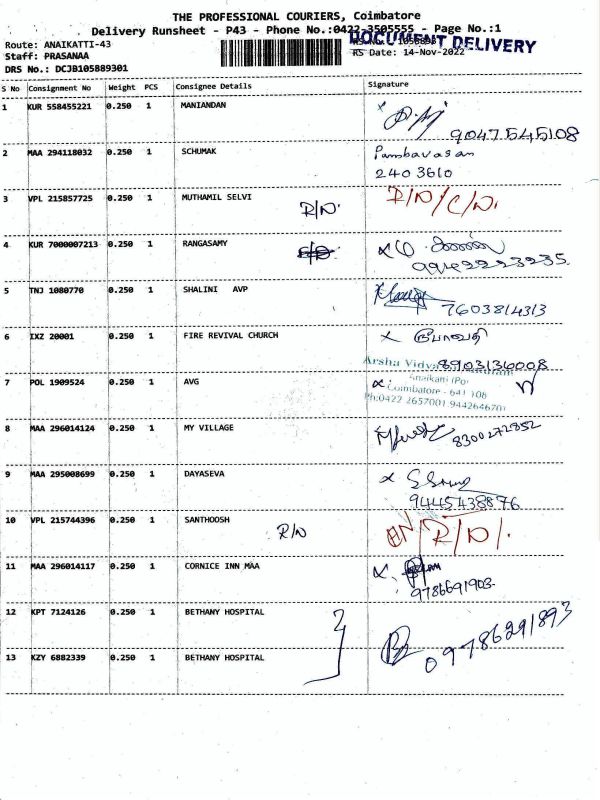 THE PROFESSIONAL COURIERS, Coimbatore
Delivery Runsheet - P43 - Phone No.:0422-3505555 - Page No.:1
DOCUMENT DELIVERY
Route: ANAIKATTI-43
Staff: PRASANAA RS Date: 14-Nov-2022
DRS No.: DCJB105889301
S No Consignment No Weight PCS Consignee Details Signature
1 KUR 558455221 0.250 1 MANIANDAN
9047545108
2 MAA 294118032 0.250 1 SCHUMAK Pambavasan
240 3610
3 VPL 215857725 0.250 1 MUTHAMIL SELVI R/D/C/N.
R/N.
4 KUR 7000007213 0.250 1 RANGASAMY
5 TNJ 1080770 0.250 1 SHALINI AVP
7603814313
6 IXZ 20001 0.250 1 FIRE REVIVAL CHURCH
Arsha Vidya 8903136008
7 POL 1909524 0.250 1 AVG Anaikatti (Po)
Coimbatore - 641 108
Ph:0422 2657001 9442646701
8 MAA 296014124 0.250 1 MY VILLAGE
8300272852
9 MAA 295008699 0.250 1 DAYASEVA
9445438876
10 VPL 215744396 0.250 1 SANTHOOSH R/D/.
R/N
11 MAA 296014117 0.250 1 CORNICE INN MAA
9786691903
12 KPT 7124126 0.250 1 BETHANY HOSPITAL
09786291893
13 KZY 6882339 0.250 1 BETHANY HOSPITAL